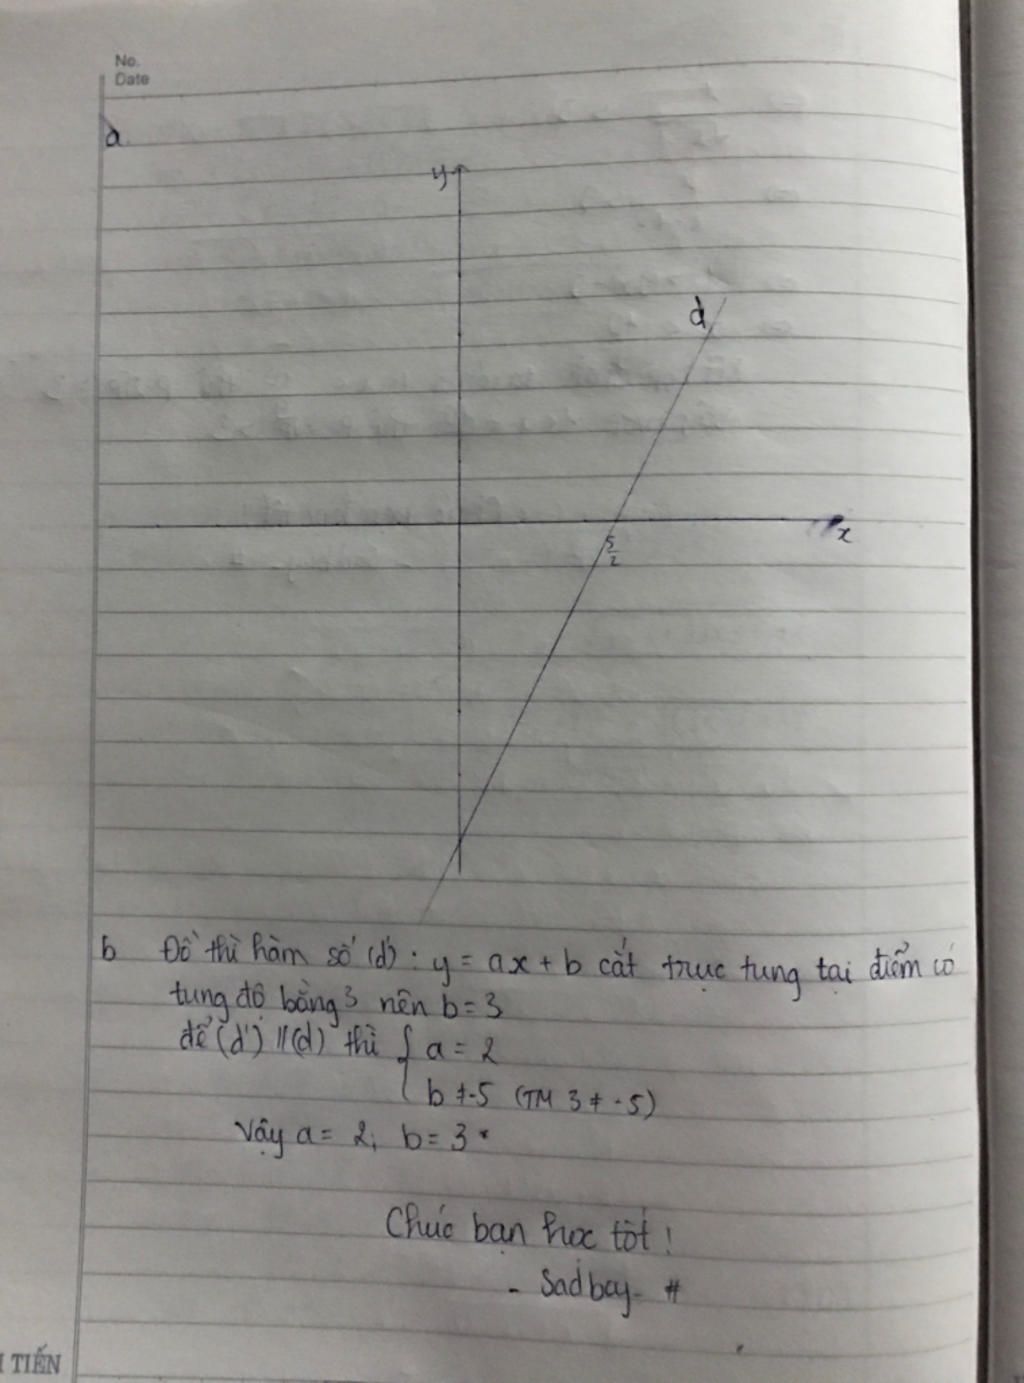 No.
Date
a.
y
d
5/2
x
b Đồ thì hàm số (d'): y = ax + b cắt trục tung tại điểm có
tung độ bằng 3 nên b = 3
để (d') // (d) thì { a = 2
b ≠ -5 (TM 3 ≠ -5)
Vậy a = 2; b = 3
Chúc bạn học tốt!
- Sadboy - #
TIẾN